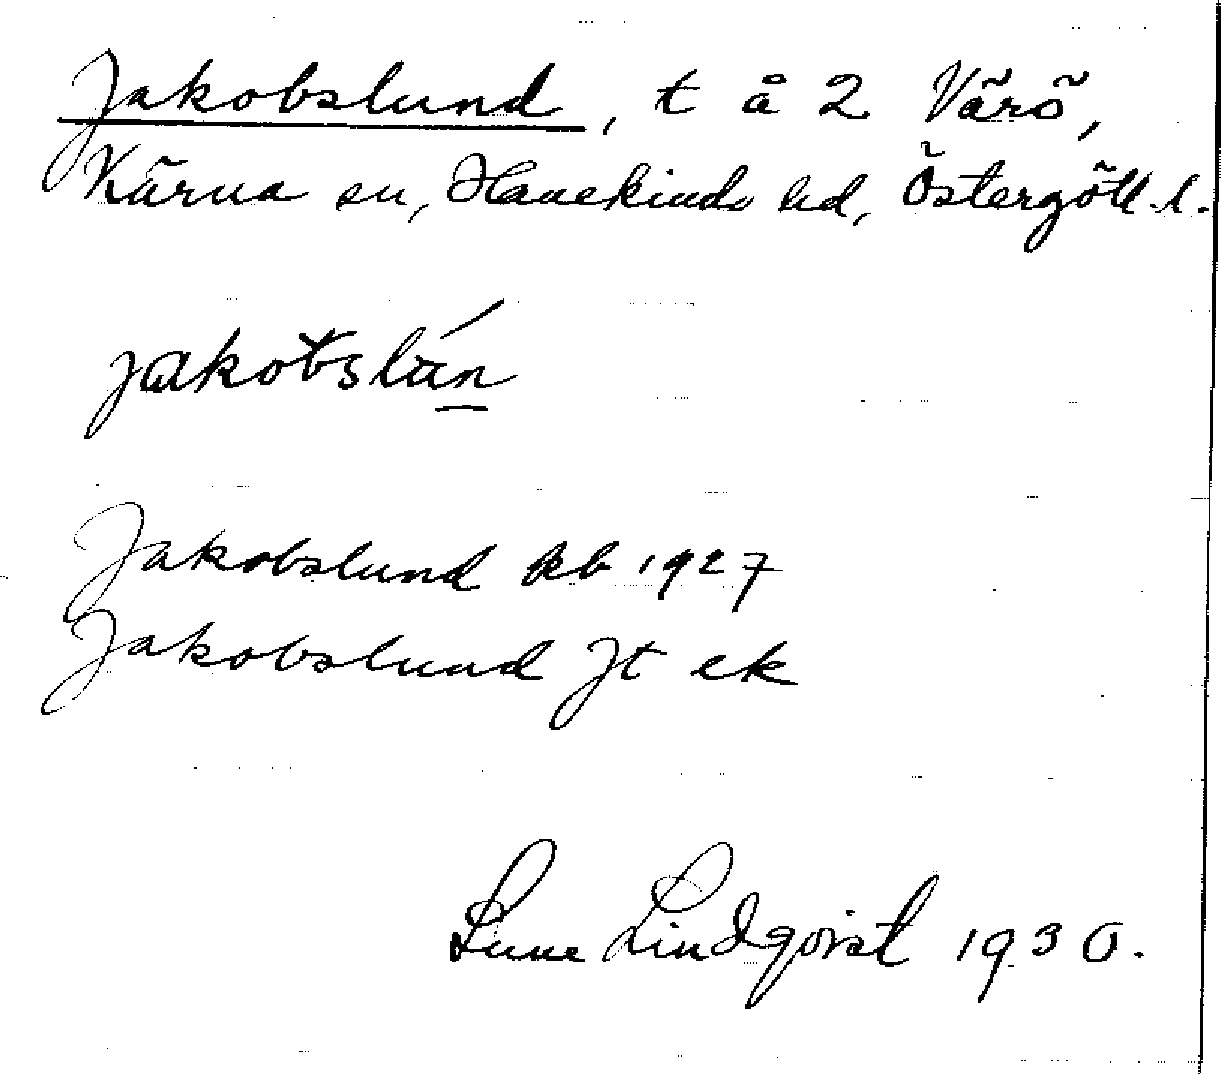 Jakobslund, t å 2 Värö,
Kärna sn, Hanekinds hd, Östergötl. l.
jakobslún
Jakobslund kb 1927
Jakobslund Jt ek
Sune Lindqvist 1930.